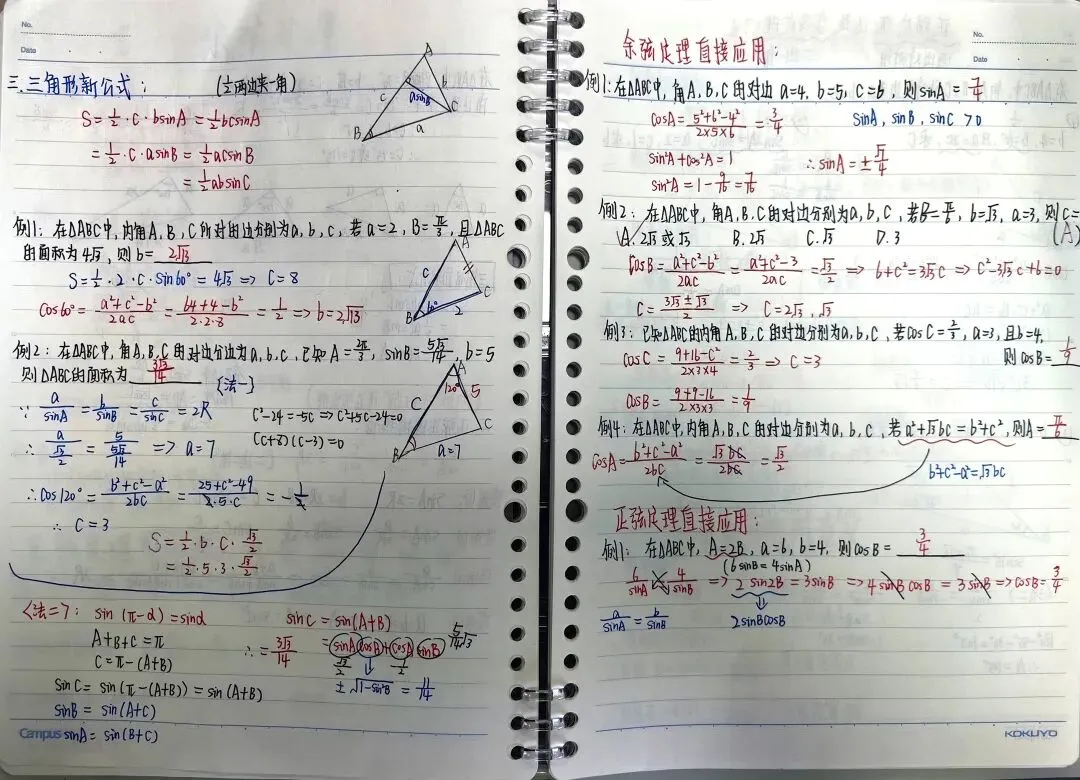 No.
Date
三.三角形新公式:
(½两边夹一角)
S=½·c·bsinA=½bcsinA
=½·c·asinB=½acsinB
=½absinC
A
B
C
c
b
a
asinB
例1:在△ABC中,内角A,B,C所对的边分别为a,b,c,若a=2,B=π/3,且△ABC
的面积为4√3,则b=2√3
S=½·2·c·sin60°=4√3=>c=8
cos60°=(a²+c²-b²)/2ac=(64+4-b²)/2·2·8=½=>b=2√13
A
B
C
c
60°
2
例2:在△ABC中,角A,B,C的对边分边为a,b,c,已知A=2π/3,sinB=5√3/14,b=5
则△ABC的面积为
{法一}
∵a/sinA=b/sinB=c/sinC=2R
c²-24=-5c=>c²+5c-24=0
(c+8)(c-3)=0
∴a/(√3/2)=5/(5√3/14)=>a=7
A
120°
5
c
B
C
a=7
∴cos120°=(b²+c²-a²)/2bc=(25+c²-49)/2·5·c=-½
∴c=3
S=½·b·c·√3/2
=½·5·3·√3/2
<法二>:sin(π-α)=sinα
sinC=sin(A+B)
A+B+C=π
∴=3√3/14
=sinAcosB+cosAsinB
5/14√3
C=π-(A+B)
√3/2
½
±√1-sin²B=11/14
sinC=sin(π-(A+B))=sin(A+B)
sinB=sin(A+C)
Campus
sinA=sin(B+C)
No.
Date
余弦定理直接应用:
例1:在△ABC中,角A,B,C的对边a=4,b=5,c=6,则sinA=√7/4
cosA=(5²+6²-4²)/2×5×6=3/4
sinA,sinB,sinC>0
sin²A+cos²A=1
∴sinA=±√7/4
sin²A=1-9/16=7/16
例2:在△ABC中,角A,B,C的对边分别为a,b,c,若B=π/6,b=√3,a=3,则c=
(A)
A.2√3或√3 B.2√3 C.√3 D.3
cosB=(a²+c²-b²)/2ac=(a²+c²-3)/2ac=√3/2=>6+c²=3√3c=>c²-3√3c+6=0
c=(3√3±√3)/2=>c=2√3,√3
例3:已知△ABC的内角A,B,C的对边分别为a,b,c,若cosC=2/3,a=3,且b=4,
则cosB=1/9
cosC=(9+16-c²)/2×3×4=2/3=>c=3
cosB=(9+9-16)/2×3×3=1/9
例4:在△ABC中,内角A,B,C的对边分别为a,b,c,若a²+√3bc=b²+c²,则A=π/6
cosA=(b²+c²-a²)/2bc=√3bc/2bc=√3/2
b²+c²-a²=√3bc
正弦定理直接应用:
例1:在△ABC中,A=2B,a=6,b=4,则cosB=3/4
(6sinB=4sinA)
6/sinA 4/sinB=>2sin2B=3sinB=>4sinBcosB=3sinB=>cosB=3/4
a/sinA=b/sinB
2sinBcosB
KOKUYO